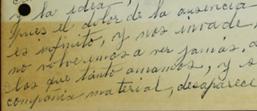 y la idea
Pues el dolor de la ausencia
es infinito, y nos invade
no volvernos a ver jamás, a
los que tanto amamos, y s
compañia material, desaparece